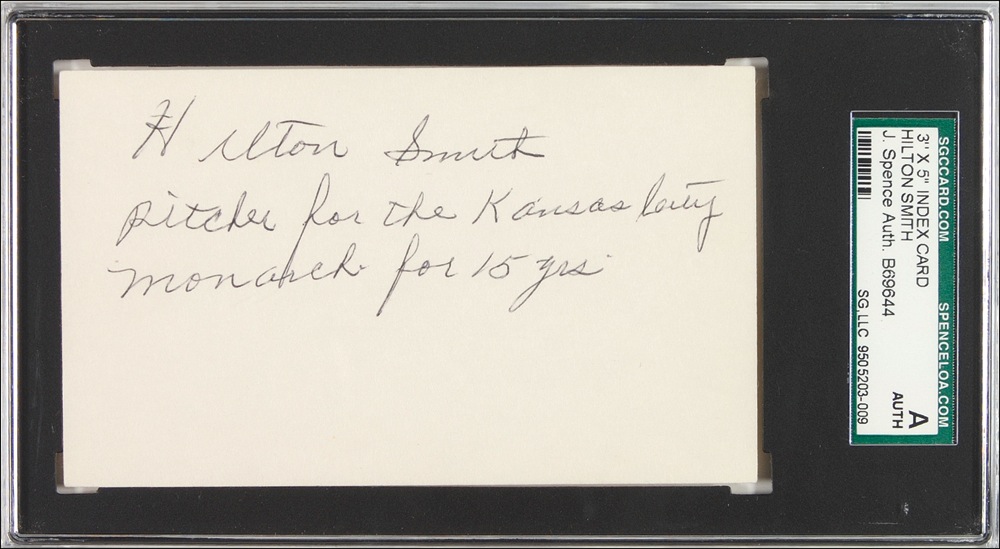 Hilton Smith
pitcher for the Kansas City
Monarch for 15 yrs
SGCCARD.COM SPENCELOA.COM
3" X 5" INDEX CARD
HILTON SMITH
J. Spence Auth. B69644
A
AUTH
SG, LLC 9505203-009